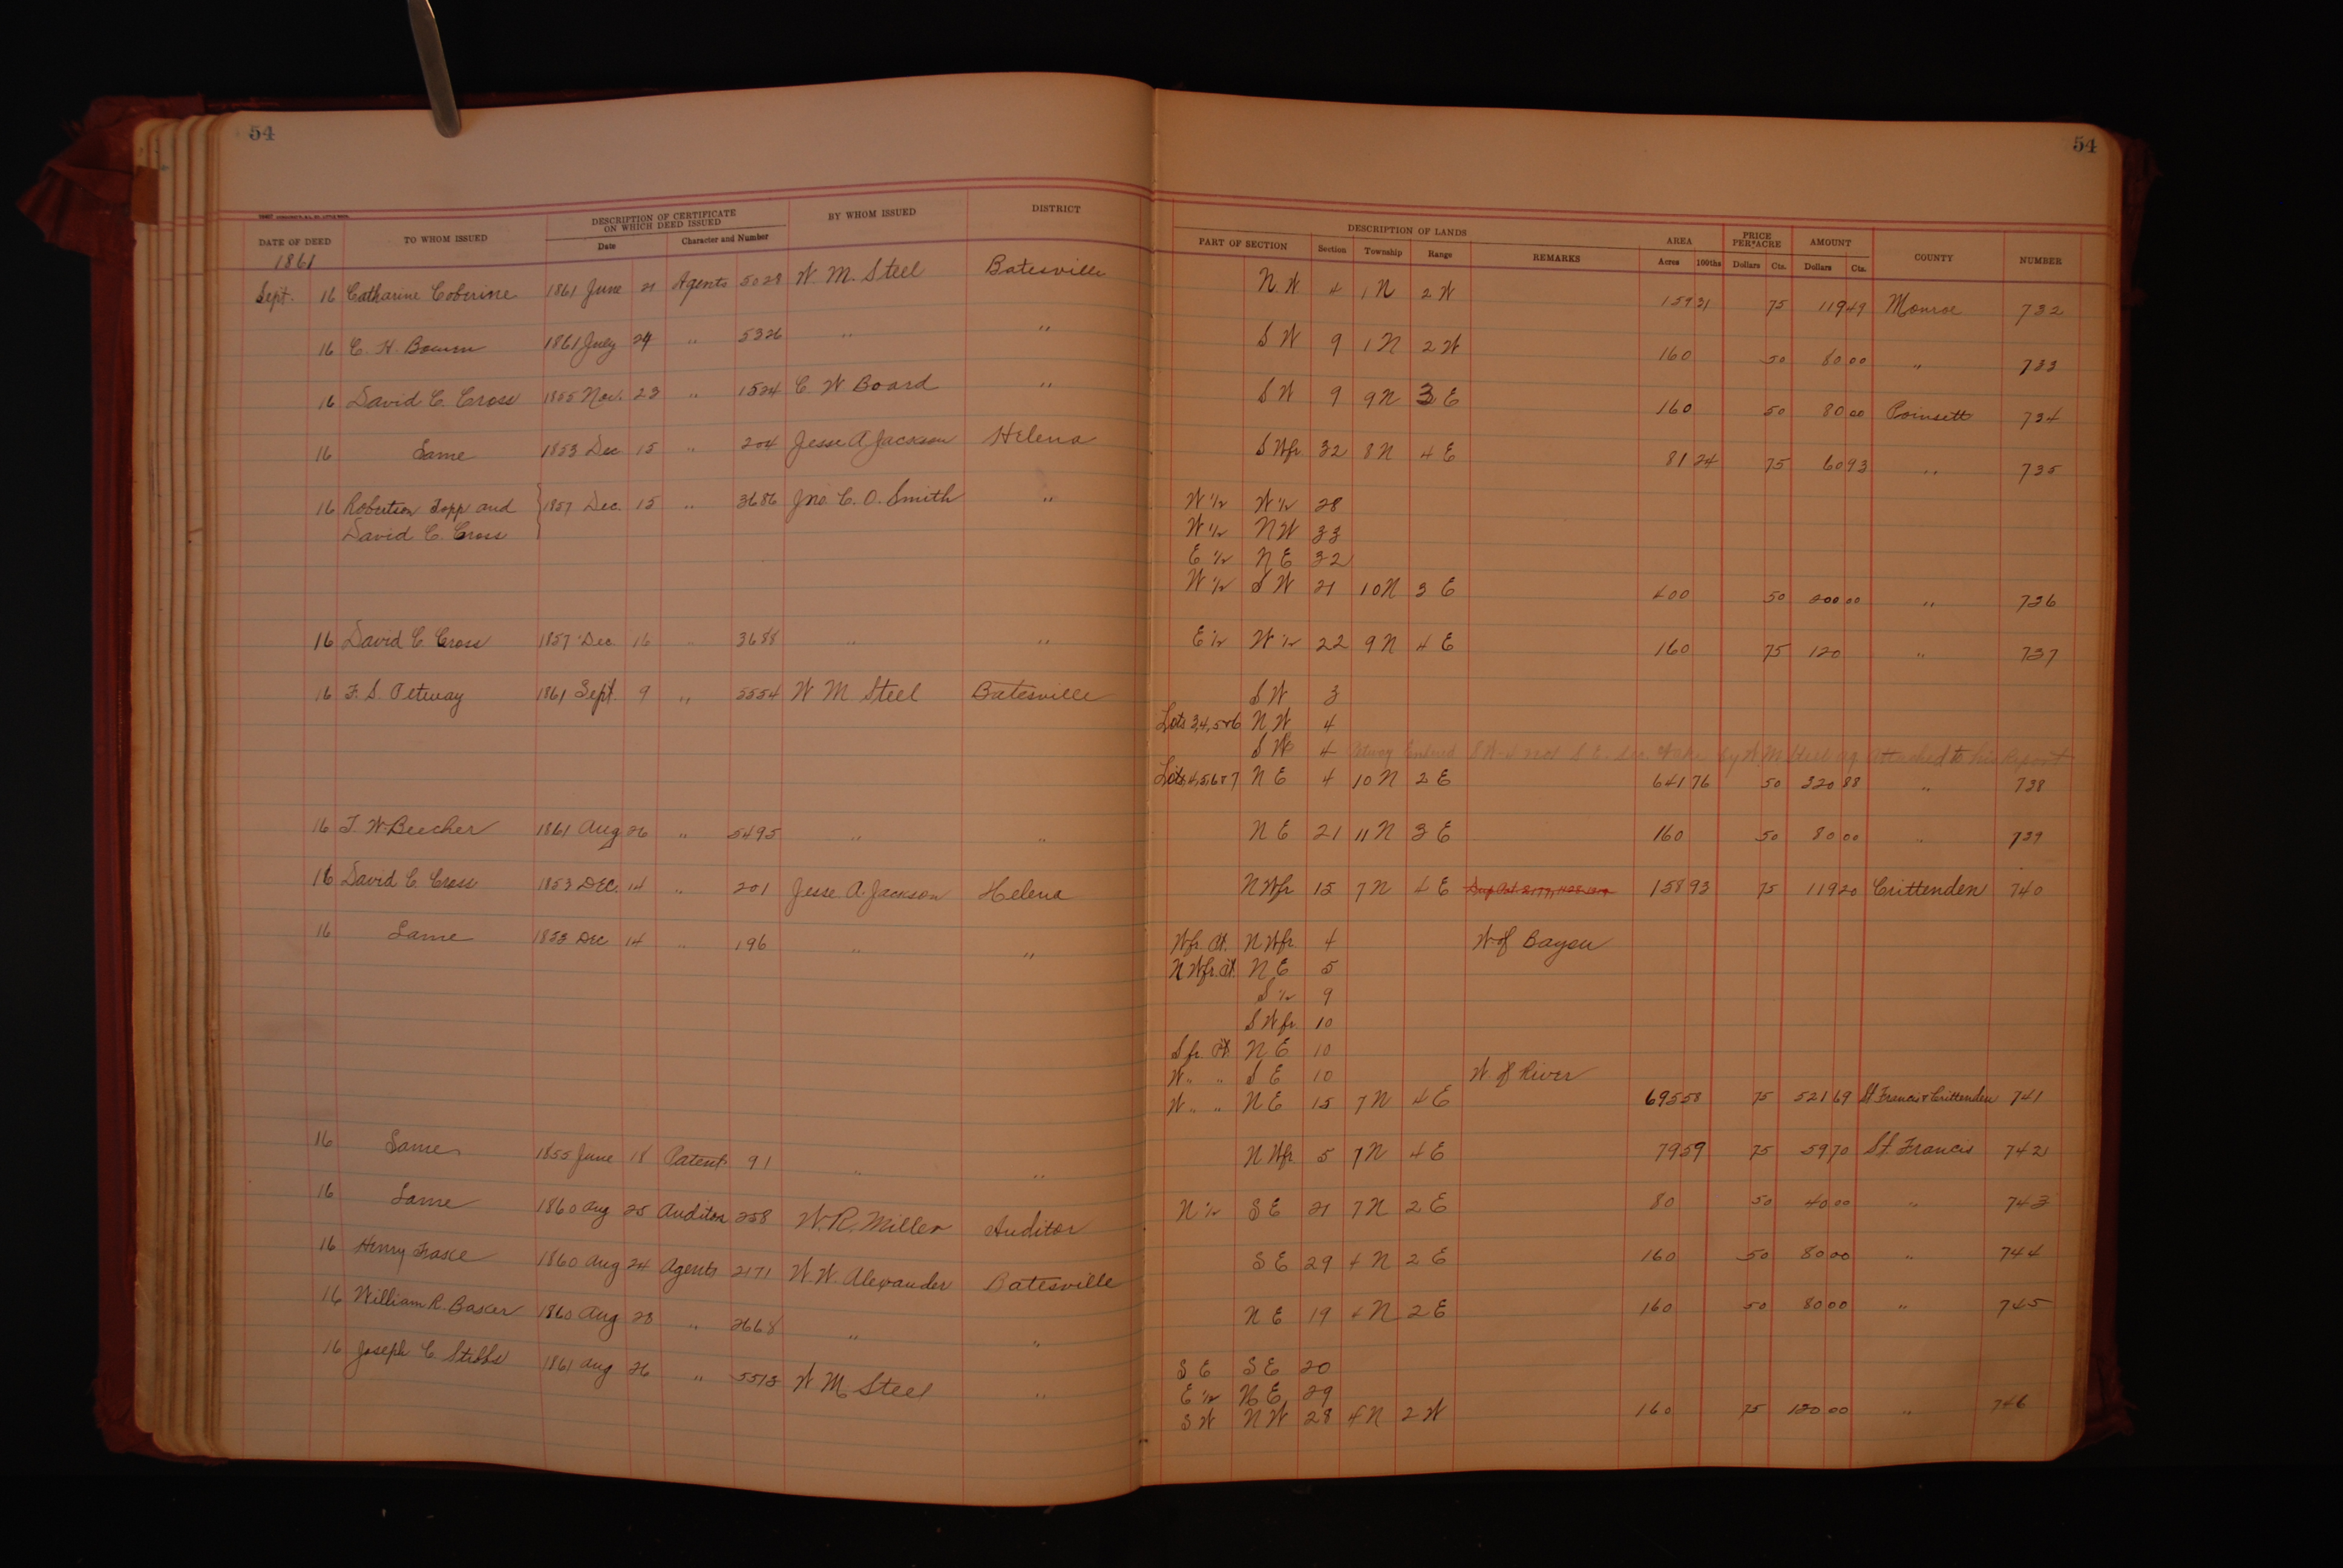 54
54
DATE OF DEED TO WHOM ISSUED DESCRIPTION OF CERTIFICATE ON WHICH DEED ISSUED BY WHOM ISSUED DISTRICT DESCRIPTION OF LANDS AREA PRICE PER ACRE AMOUNT COUNTY NUMBER
Date Character and Number PART OF SECTION Section Township Range REMARKS Acres 100ths Dollars Cts. Dollars Cts.
1861
Sept. 16 Catharine Coberine 1861 June 21 Agents 5028 W. M. Steel Batesville N W 4 1 N 2 W 159 31 75 119 49 Monroe 732
16 C. H. Bourn 1861 July 24 " 5326 " " S W 9 1 N 2 W 160 50 80 00 " 733
16 David C. Cross 1855 Nov. 23 " 1524 C W Board " S W 9 9 N 3 E 160 50 80 00 Poinsett 734
16 Same 1853 Dec 15 " 204 Jesse A Jackson Helena S Wfr 32 8 N 4 E 81 24 75 60 93 " 735
16 Robertson Topp and 1857 Dec. 15 " 3686 Jno. C. O. Smith " W 1/2 W 1/2 28
David C. Cross W 1/2 N W 33
E 1/2 N E 32
W 1/2 S W 21 10 N 3 E 400 50 200 00 " 736
16 David C Cross 1857 Dec. 16 " 3688 " " E 1/2 W 1/2 22 9 N 4 E 160 75 120 " 737
16 F. S. Petway 1861 Sept. 9 " 5554 W M Steel Batesville S W 3
Lots 3,4,5&6 N W 4
S W 4 Petway Entered S W & not S E. Sec. 4 by W. M Steel attached to his Report
Lots 4,5,6&7 N E 4 10 N 2 E 641 76 50 320 88 " 738
16 T. W Beecher 1861 Aug 26 " 5495 " " N E 21 11 N 3 E 160 50 80 00 " 739
16 David C. Cross 1853 DEC. 14 " 201 Jesse A. Jackson Helena N Wfr 15 7 N 4 E 158 93 75 119 20 Crittenden 740
16 Same 1853 Dec 14 " 196 " " Wfr. Pt. N Wfr. 4 W of Bayou
N Wfr. Pt. N E 5
S 1/2 9
S W fr. 10
S fr. Pt. N E 10
W " " S E 10 W of River
W " " N E 15 7 N 4 E 695 58 75 521 69 St Francis & Crittenden 741
16 Same 1855 June 18 Patent 91 " " N Wfr. 5 7 N 4 E 79 59 75 59 70 St. Francis 742
16 Same 1860 Aug 25 Auditor 258 W. R. Miller Auditor N 1/2 S E 21 7 N 2 E 80 50 40 00 " 743
16 Henry Frasce 1860 Aug 24 Agents 2171 W W Alexander Batesville S E 29 4 N 2 E 160 50 80 00 " 744
16 William R. Baxer 1860 Aug 28 " 2668 " " N E 19 4 N 2 E 160 50 80 00 " 745
16 Joseph C. Stibbs 1861 Aug 26 " 5513 W M Steel " S E S E 20
E 1/2 N E 29
S W N W 28 4 N 2 W 160 75 120 00 " 746